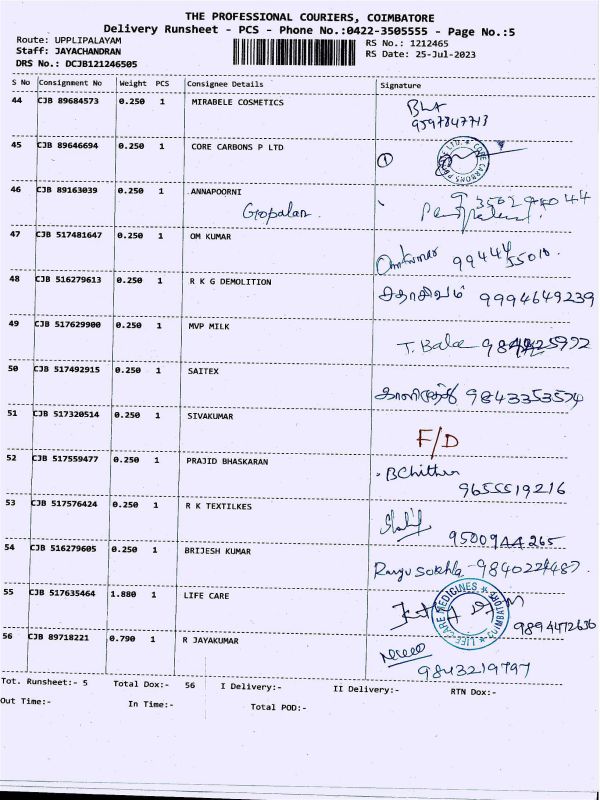 THE PROFESSIONAL COURIERS, COIMBATORE
Delivery Runsheet - PCS - Phone No.:0422-3505555 - Page No.:5
Route: UPPLIPALAYAM RS No.: 1212465
Staff: JAYACHANDRAN RS Date: 25-Jul-2023
DRS No.: DCJB121246505
S No Consignment No Weight PCS Consignee Details Signature
44 CJB 89684573 0.250 1 MIRABELE COSMETICS
9597847713
45 CJB 89646694 0.250 1 CORE CARBONS P LTD 1
46 CJB 89163039 0.250 1 ANNAPOORNI
Gopalan.
47 CJB 517481647 0.250 1 OM KUMAR
Omkumar 99444 55010.
48 CJB 516279613 0.250 1 R K G DEMOLITION
சதாசிவம் 9994649239
49 CJB 517629900 0.250 1 MVP MILK
T. Bala
50 CJB 517492915 0.250 1 SAITEX
9843353574
51 CJB 517320514 0.250 1 SIVAKUMAR
F/D
52 CJB 517559477 0.250 1 PRAJID BHASKARAN
9655519216
53 CJB 517576424 0.250 1 R K TEXTILKES
9500944265
54 CJB 516279605 0.250 1 BRIJESH KUMAR
55 CJB 517635464 1.880 1 LIFE CARE
LIFE CARE MEDICINES * COIMBATORE
9894472636
56 CJB 89718221 0.790 1 R JAYAKUMAR
9843219797
Tot. Runsheet:- 5 Total Dox:- 56 I Delivery:- II Delivery:- RTN Dox:-
Out Time:- In Time:- Total POD:-